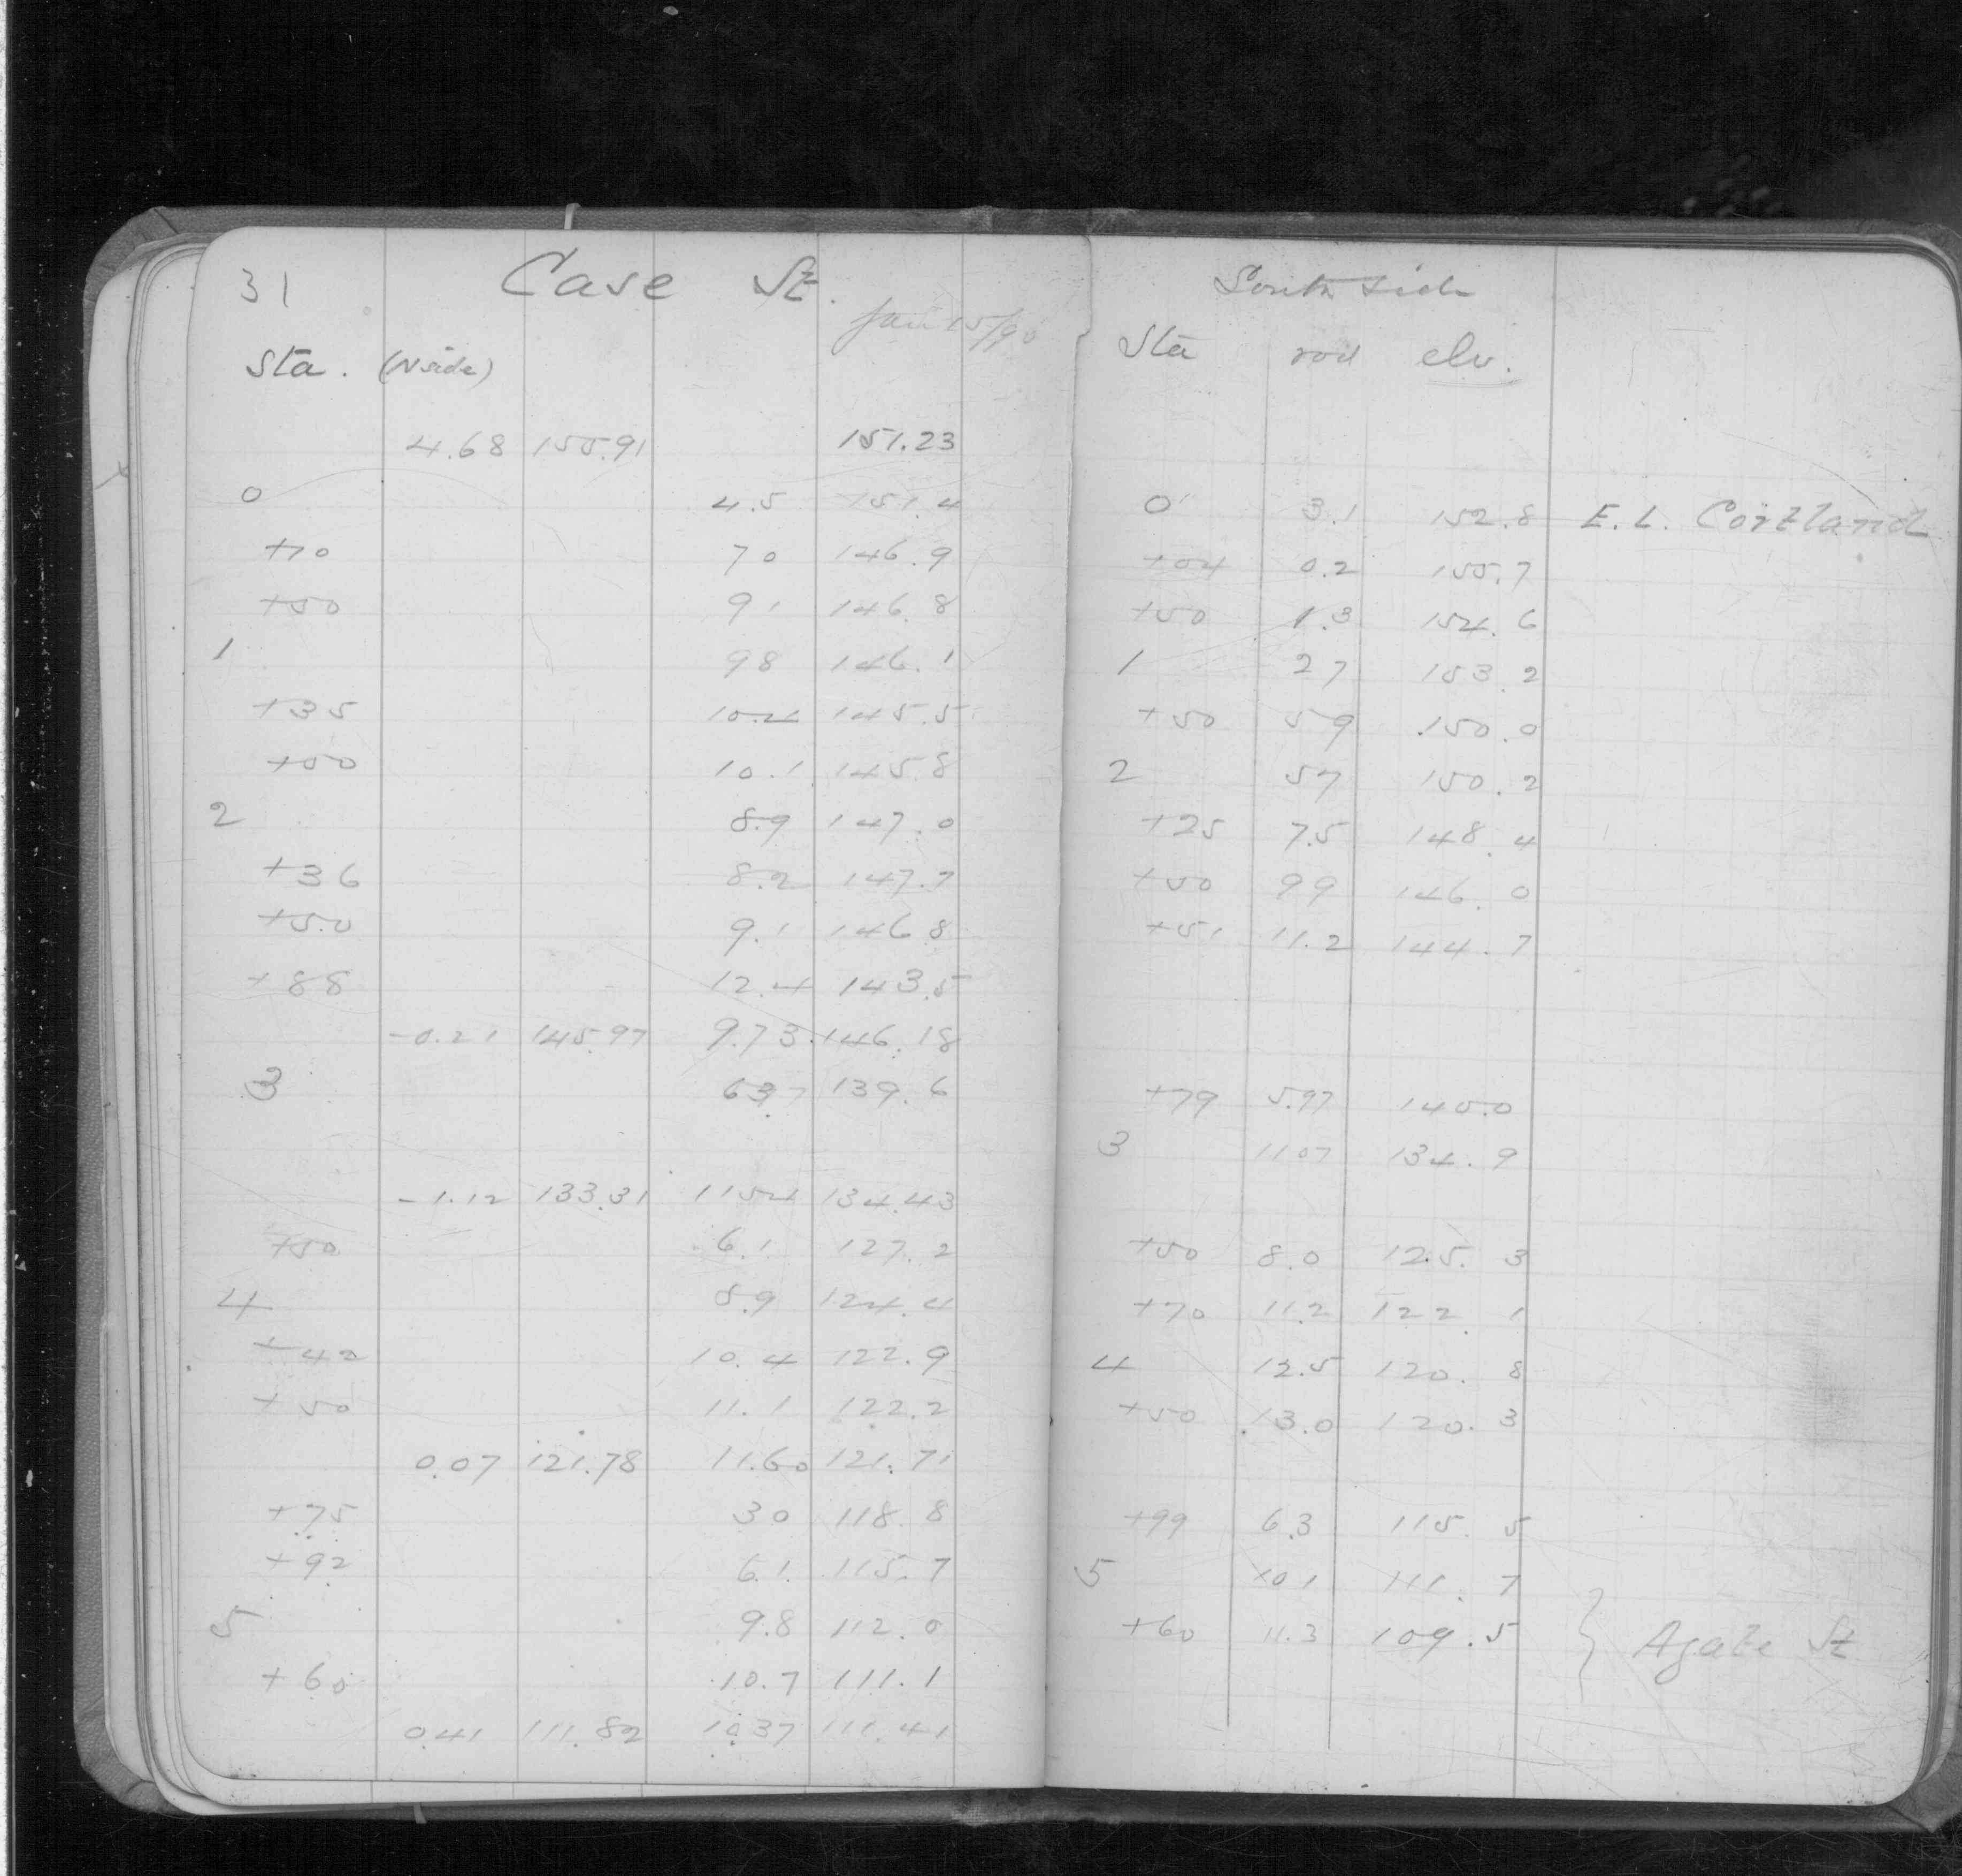 31 Case St.
Jan 15/90
Sta. (N side)
4.68 155.91 151.23
0 4.5 151.4
+10 70 146.9
+50 9 1 146.8
1 98 146.1
+35 10.4 145.5
+50 10.1 145.8
2 8.9 147.0
+36 8.2 147.7
+50 9.1 146 8
+88 12.4 143.5
-0.21 145.97 9.73 146.18
3 139.6
-1.12 133.31 11 54 134.43
+50 6.1 127.2
4 8.9 124.4
+42 10.4 122.9
+50 11.1 122.2
0.07 121.78 11.60 121.71
+75 30 118.8
+92 6 1 115.7
5 9.8 112.0
+60 10.7 111.1
0.41 111.82 10.37 111.41
South side
Sta rod elv.
0 3.1 152.8 E. L. Cortland
+04 0.2 155.7
+50 1.3 154.6
1 2 7 153.2
+50 5 9 150.0
2 57 150.2
+25 7.5 148.4
+50 99 146.0
+51 11.2 144.7
+79 5.97 140.0
3 11 07 134.9
+50 8.0 125.3
+70 11.2 122.1
4 12.5 120.8
+50 13.0 120.3
+99 6.3 115.5
5 10 1 111.7
+60 11.3 109.5 } Agate St